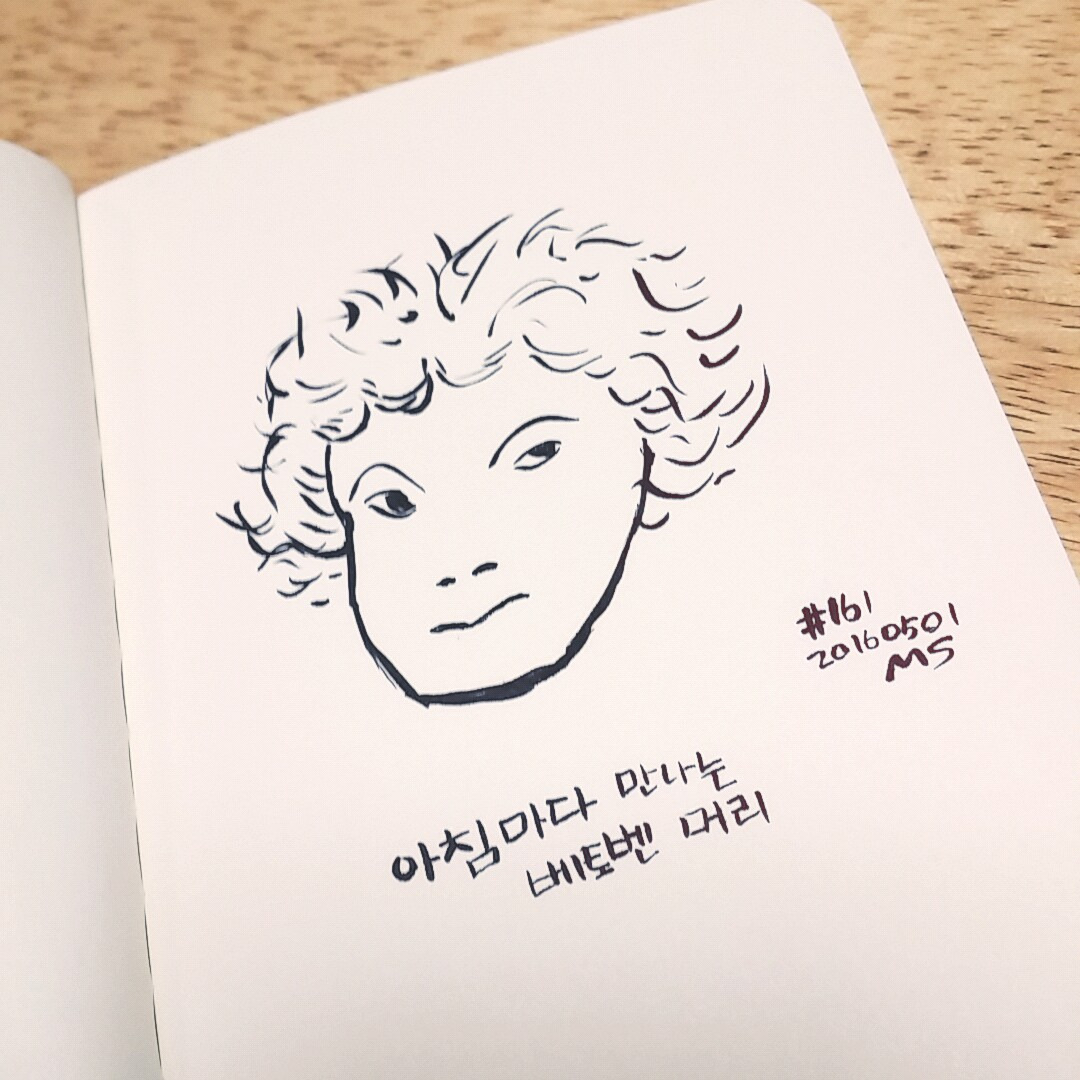 #161
20160501
MS
아침마다 만나는
베토벤 머리